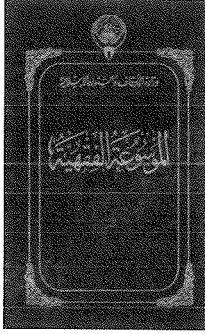 وزارة الأوقاف والشئون الإسلامية
الموسوعة الفقهية